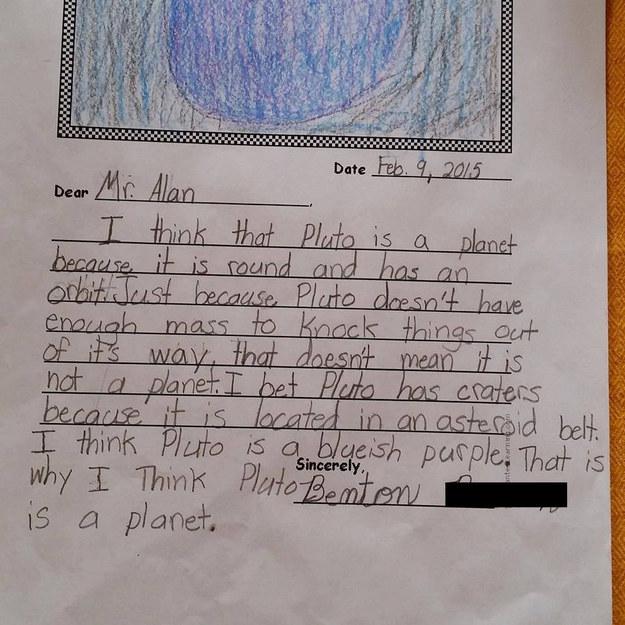 Date Feb. 9, 2015
Dear Mr. Alan,
I think that Pluto is a planet
because it is round and has an
orbit. Just because Pluto doesn't have
enough mass to knock things out
of it's way, that doesn't mean it is
not a planet. I bet Pluto has craters
because it is located in an asteroid belt.
I think Pluto is a blueish purple. That is
Sincerely,
why I Think Pluto Benton
is a planet.